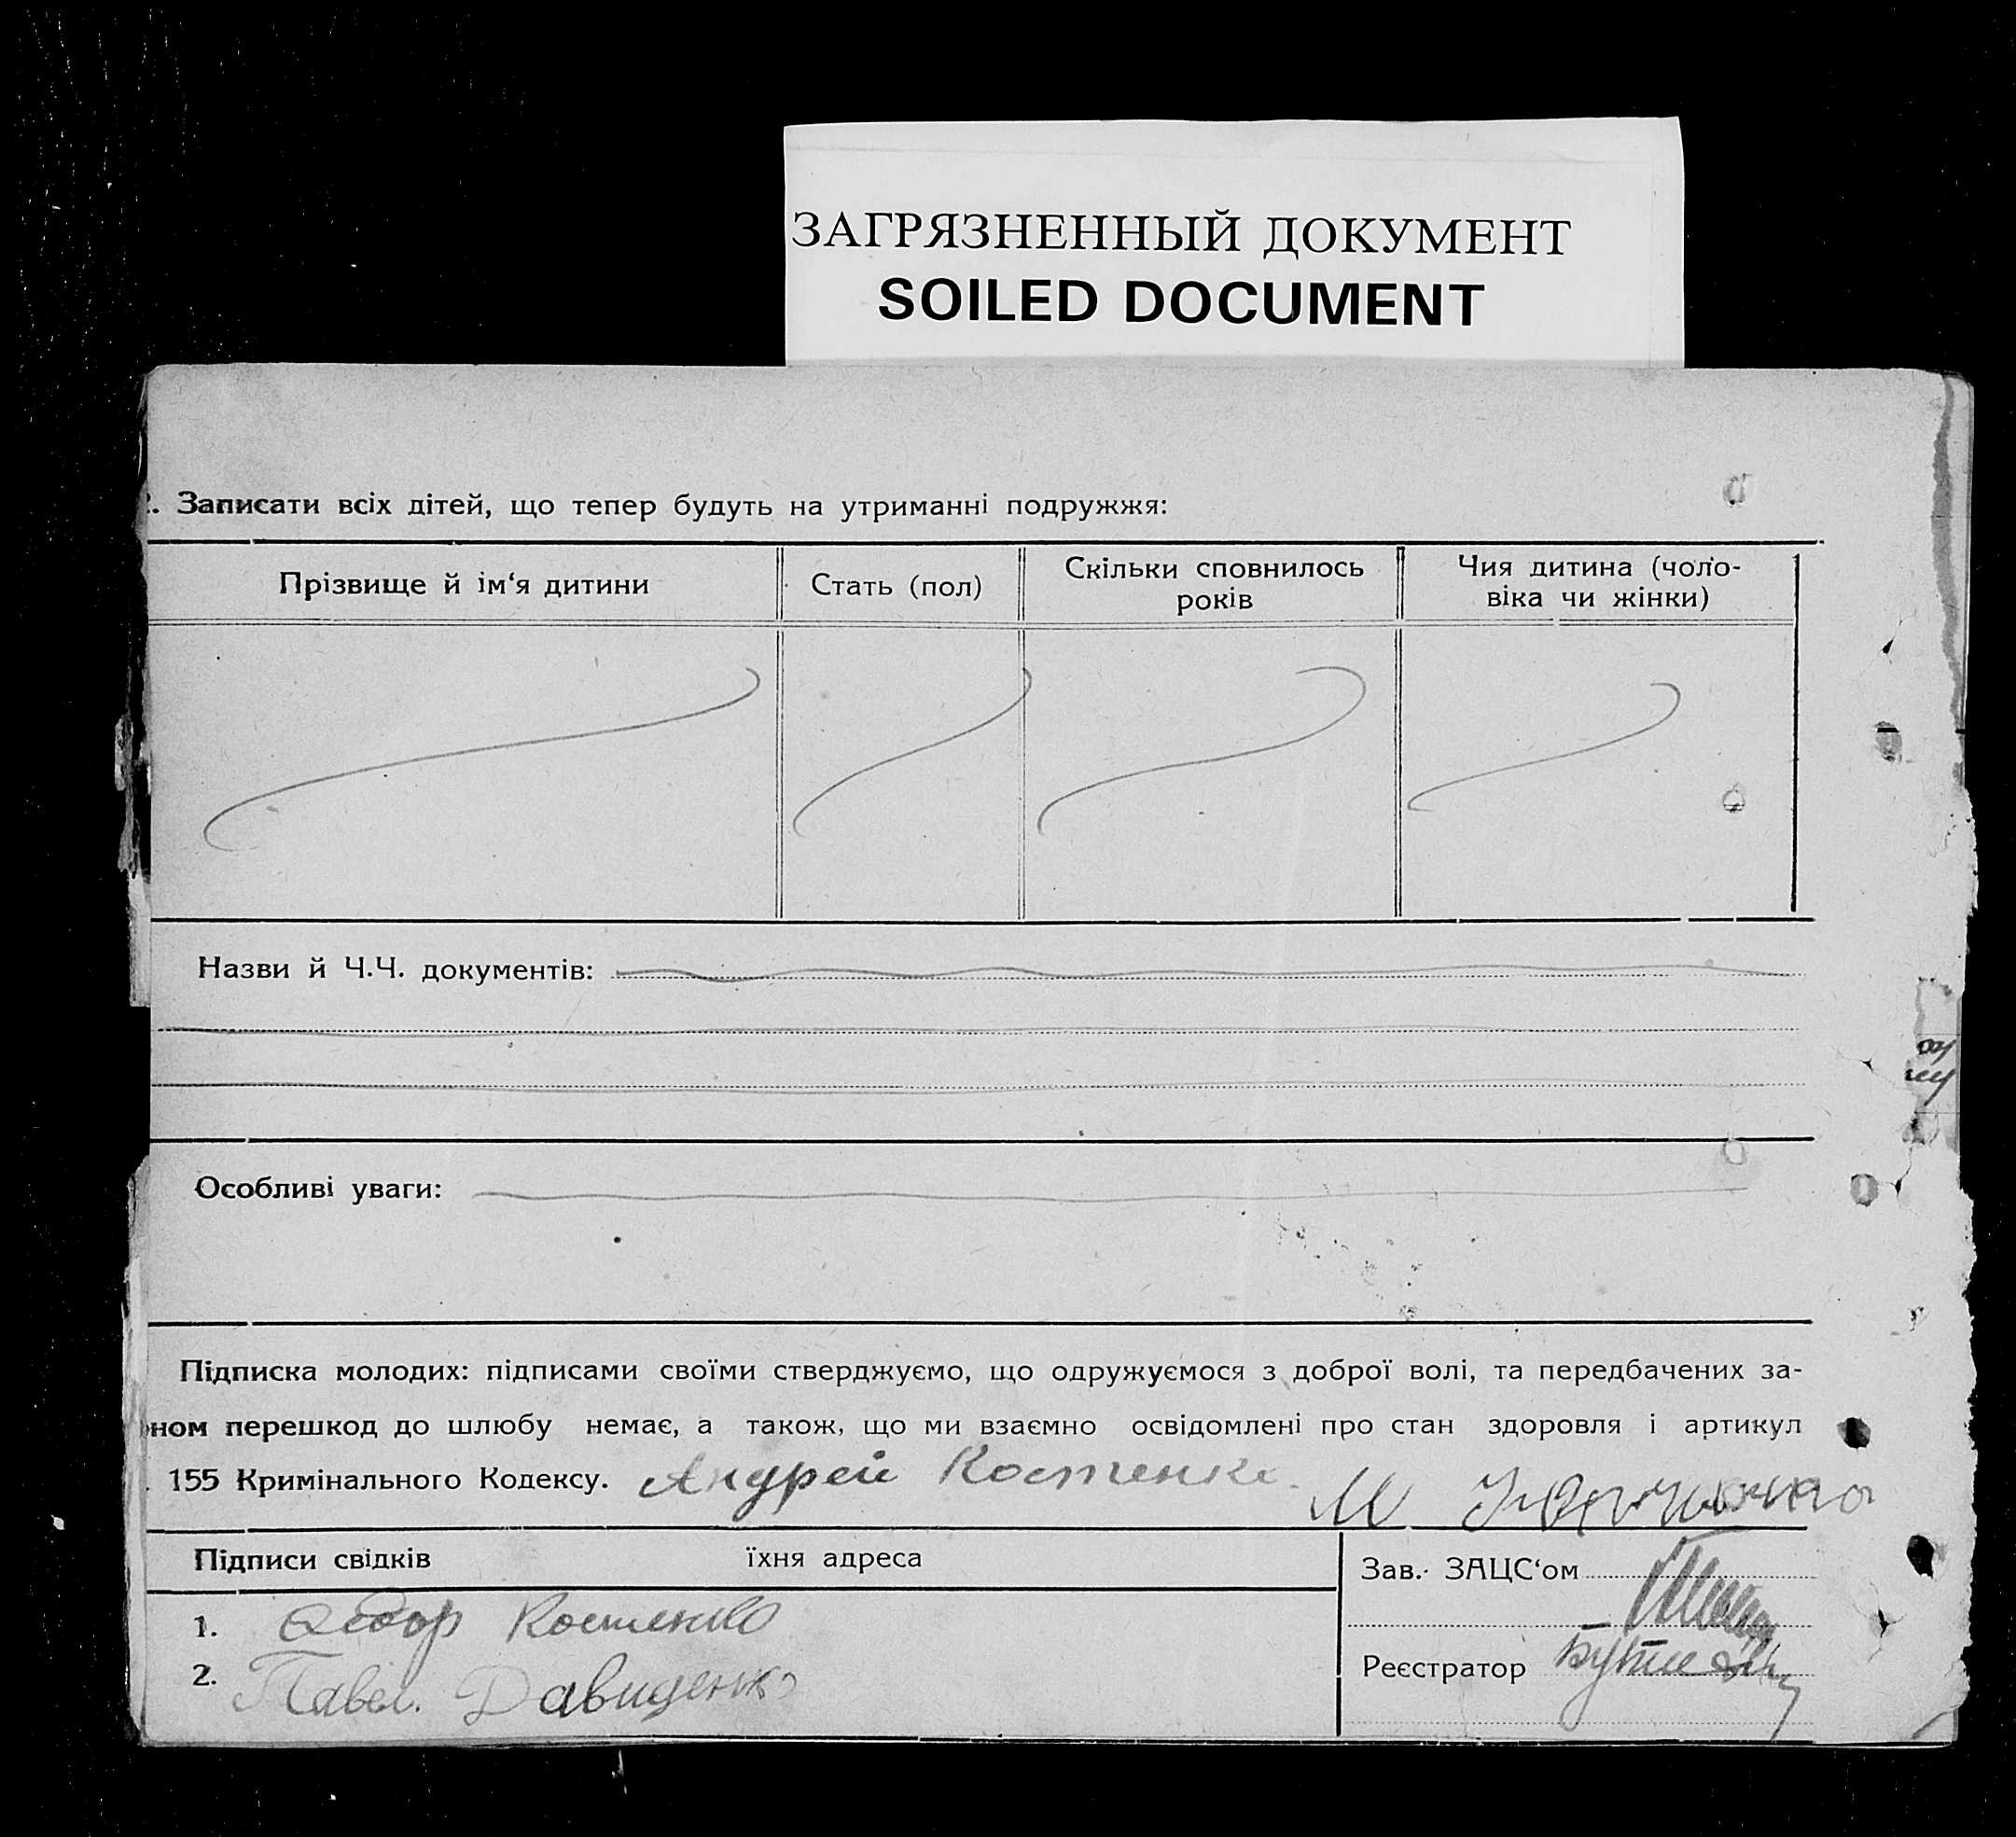 ЗАГРЯЗНЕННЫЙ ДОКУМЕНТ
SOILED DOCUMENT
. Записати всіх дітей, що тепер будуть на утриманні подружжя:
Прізвище й ім‘я дитини
Стать (пол)
Скільки сповнилось
років
Чия дитина (чоло-
віка чи жінки)
Назви й Ч.Ч. документів:
Особливі уваги:
Підписка молодих: підписами своїми стверджуємо, що одружуємося з доброї волі, та передбачених за-
ном перешкод до шлюбу немає, а також, що ми взаємно освідомлені про стан здоровля і артикул
155 Кримінального Кодексу. Андрей Костенко М
Підписи свідків їхня адреса
Зав. ЗАЦС‘ом
1. Федор Костенко
2. Павел. Давиденко
Реєстратор